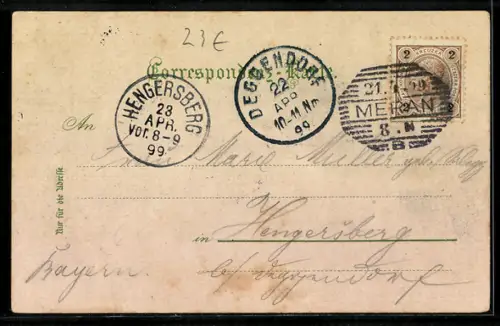 23€
Correspondenz-Karte
2 KREUZER 2
HENGERSBERG
23
APR.
Vor. 8-9
99
DEGGENDORF
22
APR
10-11 Nm
99
21. 4. 99
MERAN 1
8. N
B
An
Marie Müller
in Hengersberg
Bayern. b/ Deggendorf
Nur für die Adresse